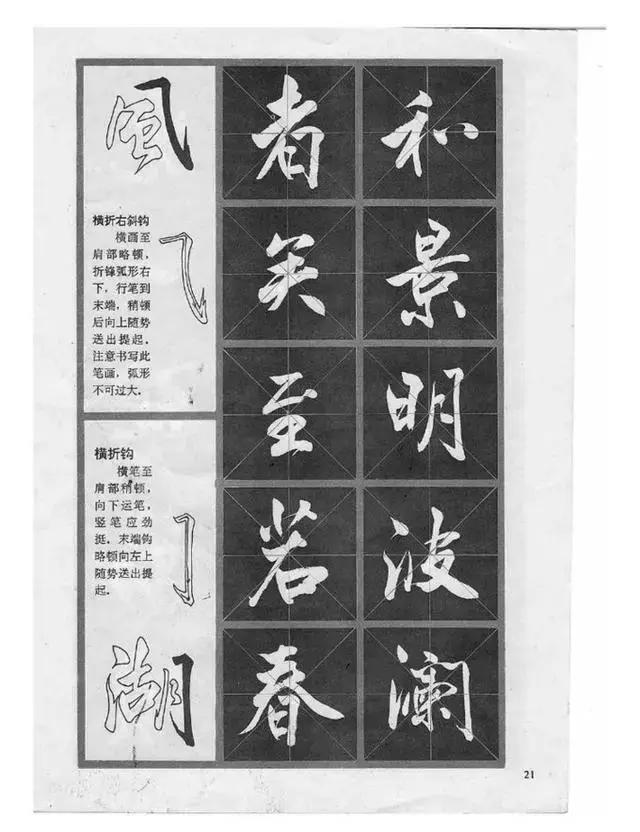 風
横折右斜钩
横画至
肩部略顿，
折锋弧形右
下，行笔到
末端，稍顿
后向上随势
送出提起．
注意书写此
笔画，弧形
不可过大．
横折钩
横笔至
肩部稍顿，
向下运笔，
竖笔应劲
挺．末端钩
略顿向左上
随势送出提
起．
湖
者矣至若春
和景明波澜
21